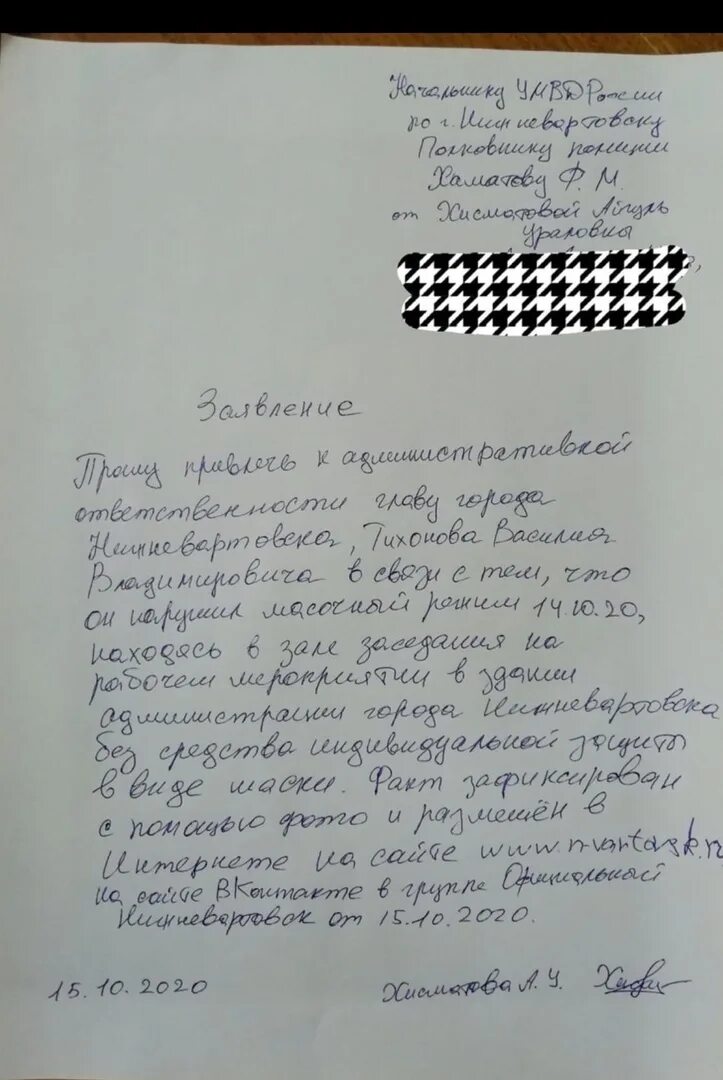 Начальнику УМВД России
по г. Нижневартовску
Полковнику полиции
Хаматову Ф. М.
от Хисматовой Айгуль
Ураловны
Заявление
Прошу привлечь к административной
ответственности главу города
Нижневартовска, Тихонова Василия
Владимировича в связи с тем, что
он нарушил масочный режим 14.10.20,
находясь в зале заседания на
рабочем мероприятии в здании
администрации города Нижневартовска
без средства индивидуальной защиты
в виде маски. Факт зафиксирован
с помощью фото и размещён в
Интернете на сайте www.n-vartovsk.ru
на сайте ВКонтакте в группе Официальный
Нижневартовск от 15.10.2020.
15.10.2020 Хисматова А. У.